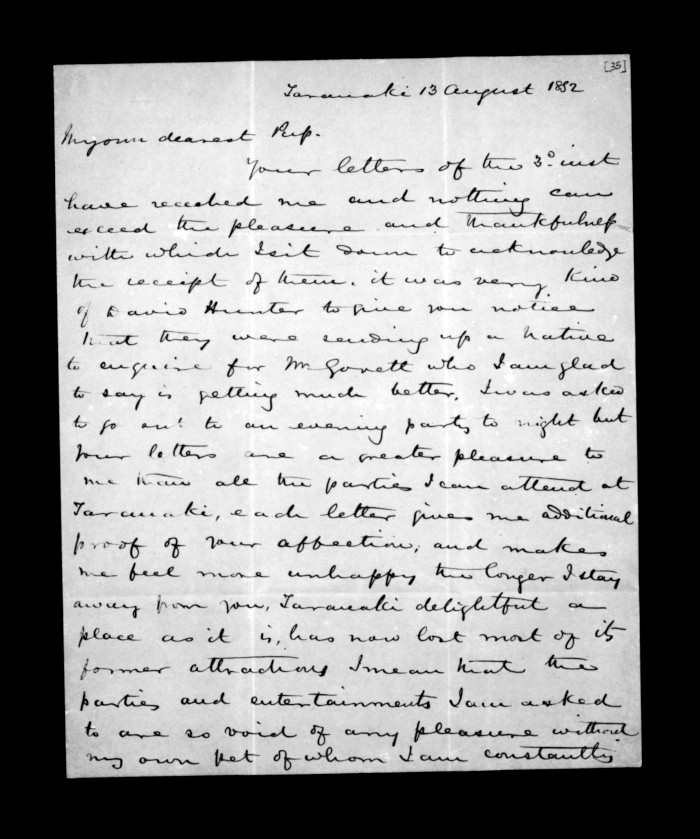 [35]
Taranaki 13 August 1852
My own dearest Pup.
Your letters of the 3º inst
have reached me and nothing can
exceed the pleasure and thankfulness
with which I sit down to acknowledge
the receipt of them. it was very kind
of David Hunter to give you notice
that they were sending up a native
to enquire for Mr Govett who I am glad
to say is getting much better. I was asked
to go out to an evening party to night but
your letters are a greater pleasure to
me than all the parties I can attend at
Taranaki, each letter gives me additional
proof of your affection, and makes
me feel more unhappy the longer I stay
away from you, Taranaki delightful a
place as it is, has now lost most of its
former attractions I mean that the
parties and entertainments I am asked
to are so void of any pleasure without
my own pet of whom I am constantly